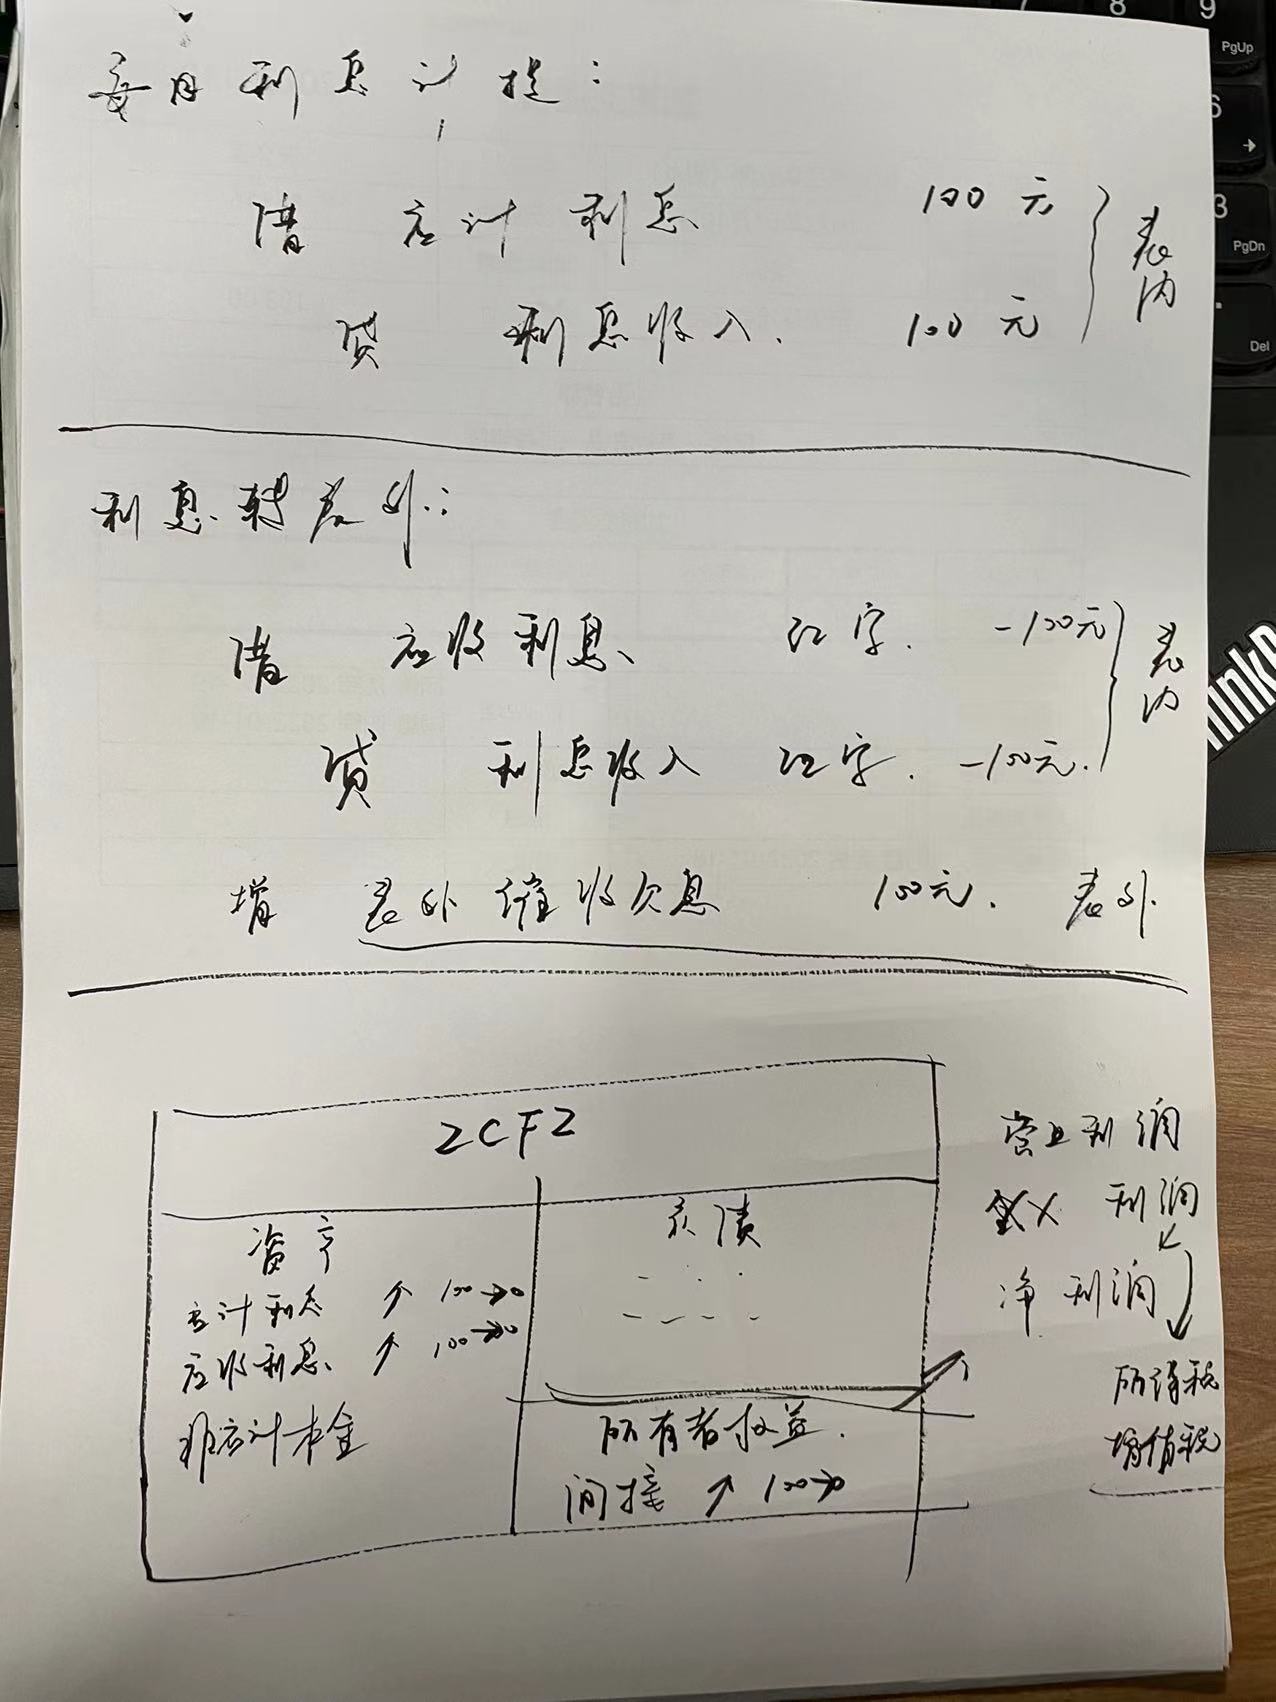 每月利息计提：
借 应计利息 100元
贷 利息收入. 100元
表内
利息转表外：
借 应收利息、 红字. -100元
贷 利息收入 红字. -100元.
表内
增 表外催收欠息 100元. 表外.
ZCFZ
资产
应计利息 ↑ 100→0
应收利息、 ↑ 100→0
非应计本金
负债
所有者权益.
间接 ↑ 100→0
营业利润
利润
净利润
所得税
增值税
7
8
9
PgUp
6
3
PgDn
Del